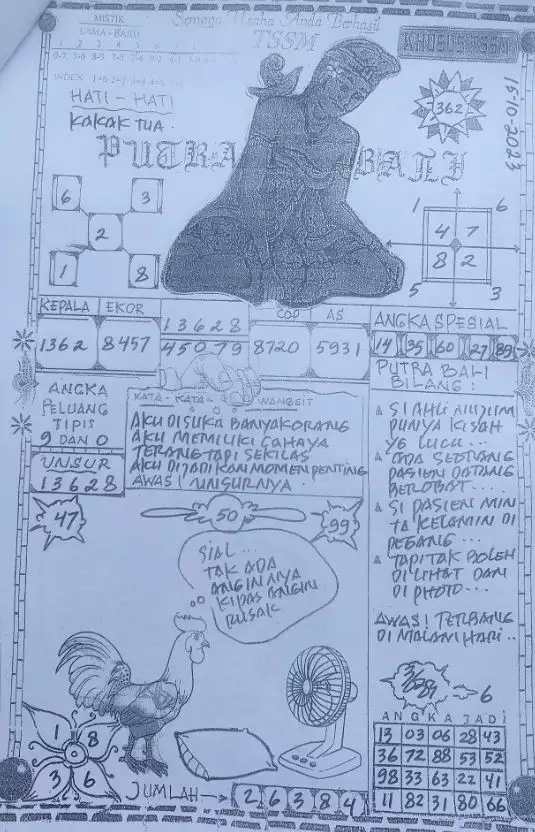 Semoga Usaha Anda Berhasil
TSSM
MISTIK
LAMA - BARU
KHUSUS TSSM
15-10-2023
362
HATI - HATI
KAKAK TUA.
PUTRA BALI
6 3
2
1 8
1 6
4 7
8 2
5 3
KEPALA EKOR COP AS
1362 8457 13628 8720 5931
45079
ANGKA SPESIAL
14 35 60 27 89
ANGKA
PELUANG
TIPIS
9 DAN 0
UNSUR
13628
KATA - KATA WANGSIT
AKU DISUKA BANYAK ORANG
AKU MEMILIKI CAHAYA
TERANG TAPI SEKILAS
AKU DIJADIKAN MOMEN PENTING
AWAS! UNSURNYA.
PUTRA BALI
BILANG:
SI AHLI
PUNYA KISAH
YG LUCU...
ADA SEORANG
PASIEN DATANG
BEROBAT...
SI PASIEN MIN
TA KELAMIN DI
PEGANG...
TAPI TAK BOLEH
DI LIHAT DAN
DI PHOTO...
AWAS! TERBANG
DI MALAM HARI..
47
50
99
SIAL...
TAK ADA
ANGINNYA
KIPAS ANGIN
RUSAK
6
1 8
3 6
JUMLAH
2 6 3 8 4
ANGKA JADI
13 03 06 28 43
36 72 88 53 52
98 33 63 22 41
11 82 31 80 66